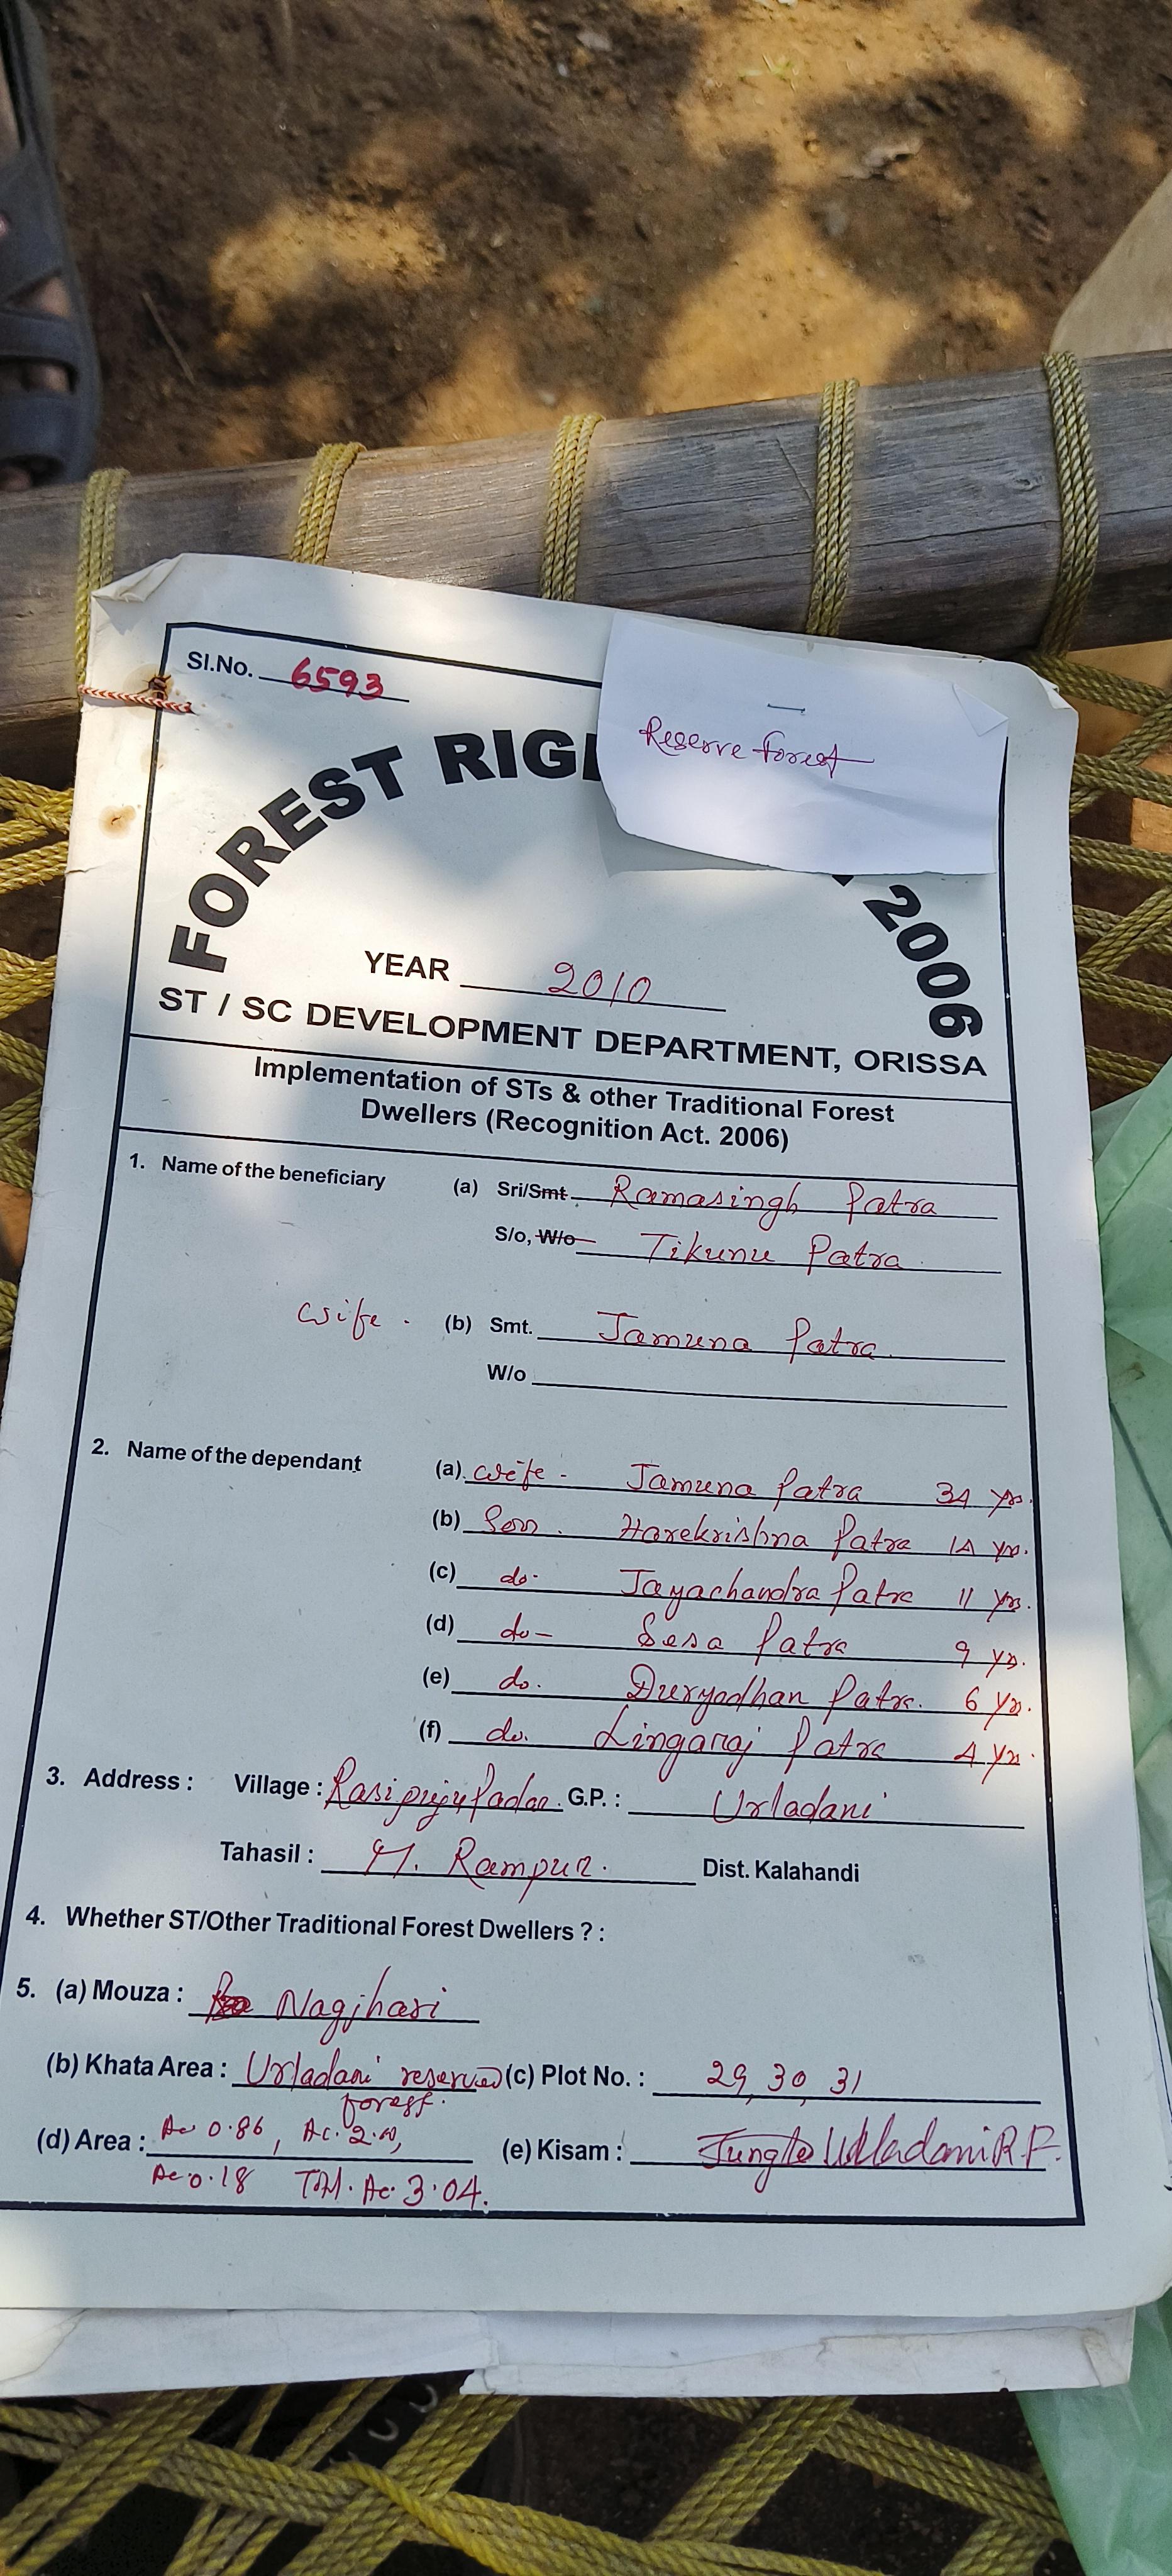 Sl.No. 6593
Reserve forest
FOREST RIG 2006
YEAR 2010
ST / SC DEVELOPMENT DEPARTMENT, ORISSA
Implementation of STs & other Traditional Forest
Dwellers (Recognition Act. 2006)
1. Name of the beneficiary (a) Sri/Smt Ramasingh Patra
S/o, W/o Tikunu Patra
wife. (b) Smt. Jamuna Patra
W/o
2. Name of the dependant (a). wife - Jamuna Patra 34 yrs.
(b) Son. Harekrishna Patra 14 yrs.
(c) do- Jayachandra Patra 11 yrs.
(d) do- Sesa Patra 9 yrs.
(e) do. Duryodhan Patra. 6 yrs.
(f) do. Lingaraj Patra 4 yrs.
3. Address : Village : G.P. : Urladani
Tahasil : M. Rampur. Dist. Kalahandi
4. Whether ST/Other Traditional Forest Dwellers ? :
5. (a) Mouza : Nagjhari
(b) Khata Area : Urladani reserved (c) Plot No. : 29, 30, 31
forest.
(d) Area : Ac 0.86, Ac. 2.00, (e) Kisam : Jungle Urladani R.F.
Ac 0.18 Total. Ac. 3.04.